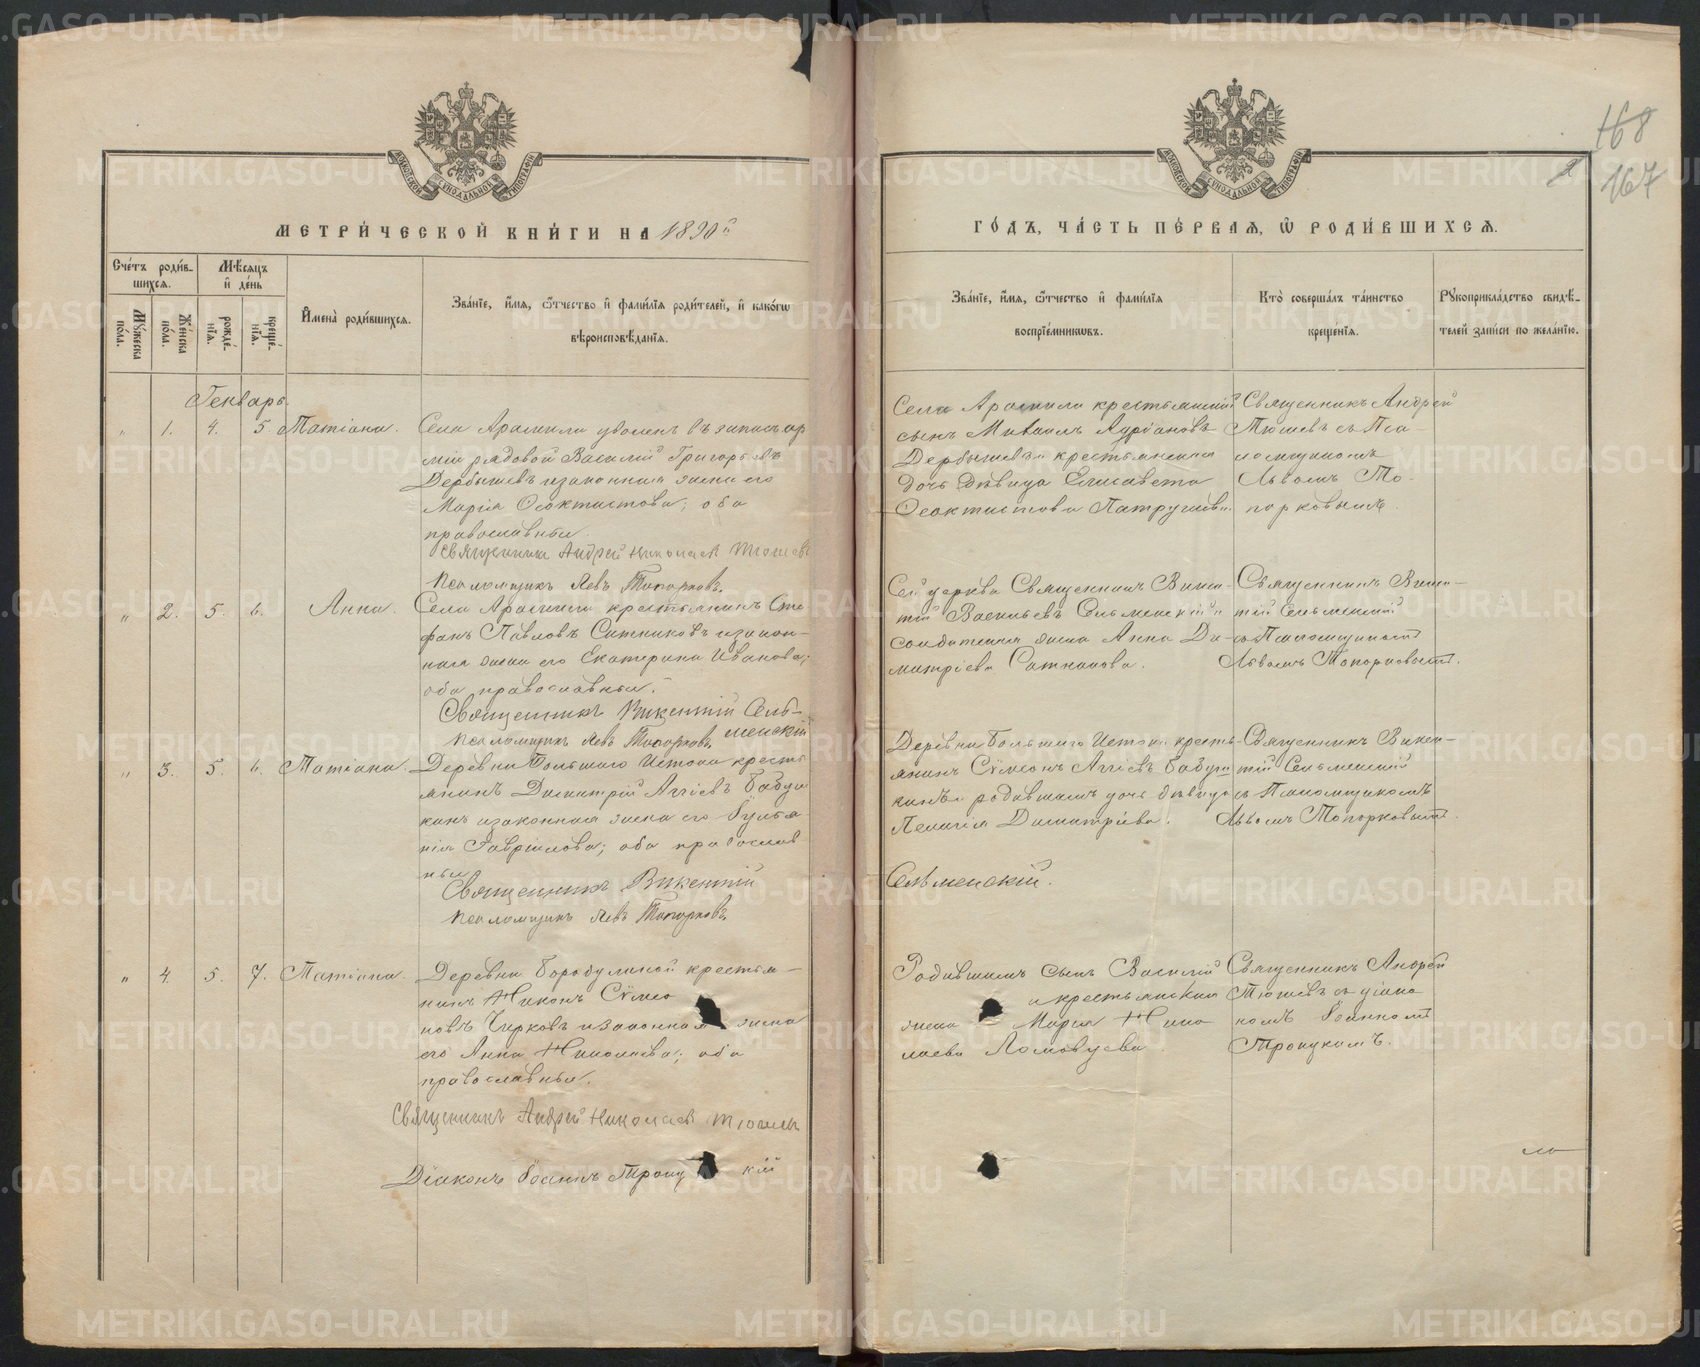 168
167
МЕТРИ́ЧЕСКОЙ КНИ́ГИ НА 1890й
ГО́ДЪ, ЧА́СТЬ ПЕ́РВАЯ, Ѽ РОДИ́ВШИХСЯ.
Сче́тъ роди́в-
шихся.
Мѣ́сяцъ
и҆ де́нь
Мꙋ́жеска
по́ла.
Же́нска
по́ла.
рожде́-
нїя.
креще́-
нїя.
И҆мена̀ роди́вшихся.
Зва́нїе, и҆́мя, ѻ҆́тчество и҆ фами́лїя роди́телей, и҆ како́гѡ
вѣроисповѣ́данїя.
Зва́нїе, и҆́мя, ѻ҆́тчество и҆ фами́лїя
воспрїе́мникѡвъ.
Кто̀ соверша́лъ та́инство
креще́нїя.
Рꙋкоприкла́дство свидѣ́-
телей за́писи по жела́нїю.
Генварь.
" 1. 4. 5. Татіана.
Села Арамили уволен. въ запасъ ар
міи рядовой Василій Григорьевъ
Дербышевъ и законная жена его
Марія Ѳеоктистова; оба
православные.
Священникъ Андрей Николаевъ Тюшевъ
Псаломщикъ Левъ Топорковъ
Села Арамили крестьянскій
сынъ Михаилъ Адріановъ
Дербышевъ и крестьянская
дочь дѣвица Елисавета
Ѳеоктистова Патрушева.
Священникъ Андрей
Тюшевъ съ Пса-
ломщикомъ
Львомъ То-
порковымъ.
" 2. 5. 6. Анна.
Села Арамили крестьянинъ Сте
фанъ Павловъ Ситниковъ и закон-
ная жена его Екатерина Иванова;
оба православные.
Священникъ Викентій Сель-
менскій
Псаломщикъ Левъ Топорковъ
Сей церкви Священникъ Викен-
тій Васильевъ Сельменскій и
солдатская жена Анна Ди-
митріева Ситникова.
Священникъ Викен-
тій Сельменскій
съ Псаломщикомъ
Львомъ Топорковымъ.
" 3. 5. 6. Татіана.
Деревни Большаго Истока кресть
янинъ Димитрій Аггіевъ Бабуш
кинъ и законная жена его Іуліа
нія Гавріилова; оба православ
ные
Священникъ Викентій
Псаломщикъ Левъ Топорковъ
Деревни Большаго Истока кресть-
янинъ Сѵмеонъ Аггіевъ Бабуш
кинъ и родившаго дочь дѣвица
Пелагія Димитріева.
Священникъ Викен-
тій Сельменскій
съ Псаломщикомъ
Львомъ Топорковымъ.
Сельменскій.
" 4. 5. 7. Татіана.
Деревни Бородулиной крестья-
нинъ Никонъ Сѵмео
новъ Чирковъ и законная жена
его Анна Николаева; оба
православные.
Священникъ Андрей Николаевъ Тюшевъ
Діаконъ Іоаннъ Троицкій
Родившаго сынъ Василій
и крестьянская
жена Марія Нико
лаева Ломовцева.
Священникъ Андрей
Тюшевъ съ діако
номъ Іоанномъ
Троицкимъ.
METRIKI.GASO-URAL.RU